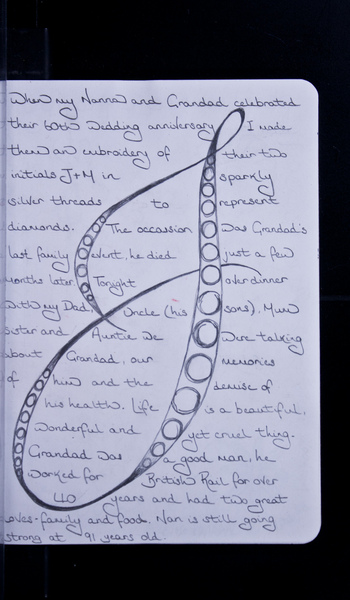 When my Nanna and Grandad celebrated
their 60th Wedding anniversary I made
them an embroidery of their two
initials J+M in sparkly
silver threads to represent
diamonds. The occassion was Grandad's
last family event, he died just a few
months later. Tonight over dinner
with my Dad, Uncle (his sons), Mum
sister and Auntie we were talking
about Grandad, our memories
of him and the demise of
his health. Life is a beautiful,
wonderful and yet cruel thing.
Grandad was a good man, he
worked for British Rail for over
40 years and had two great
loves - family and food. Nan is still going
strong at 91 years old.